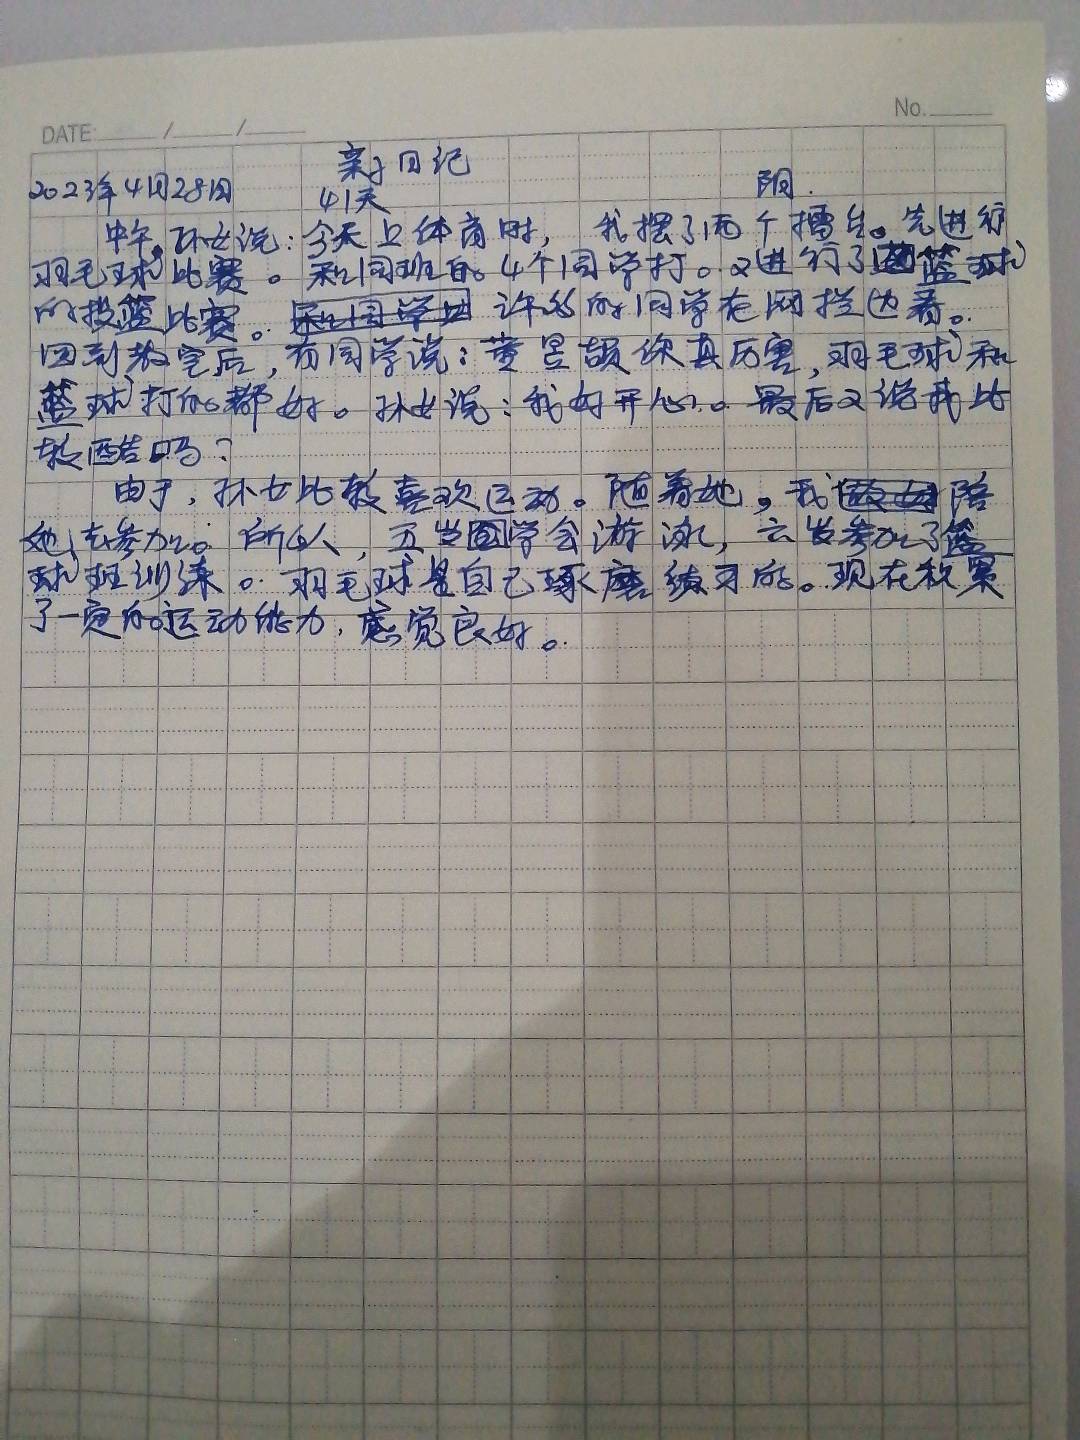 DATE: / /
No.
亲子日记
2023年4月28日 41天 阴.
中午,孙女说:今天上体育时, 我摆了两个擂台。先进行
羽毛球比赛。和同班的4个同学打。又进行了篮球
的投篮比赛。许多的同学在网拦边看。
回到教室后,有同学说:黄昱颉你真厉害,羽毛球和
篮球打的都好。孙女说:我好开心。最后又说我比
较酷吗?
由于,孙女比较喜欢运动。随着她,我陪
她去参加。所以,五岁学会游泳,六岁参加了篮
球班训练。羽毛球是自己琢磨练习的。现在积累
了一定的运动能力,感觉良好。